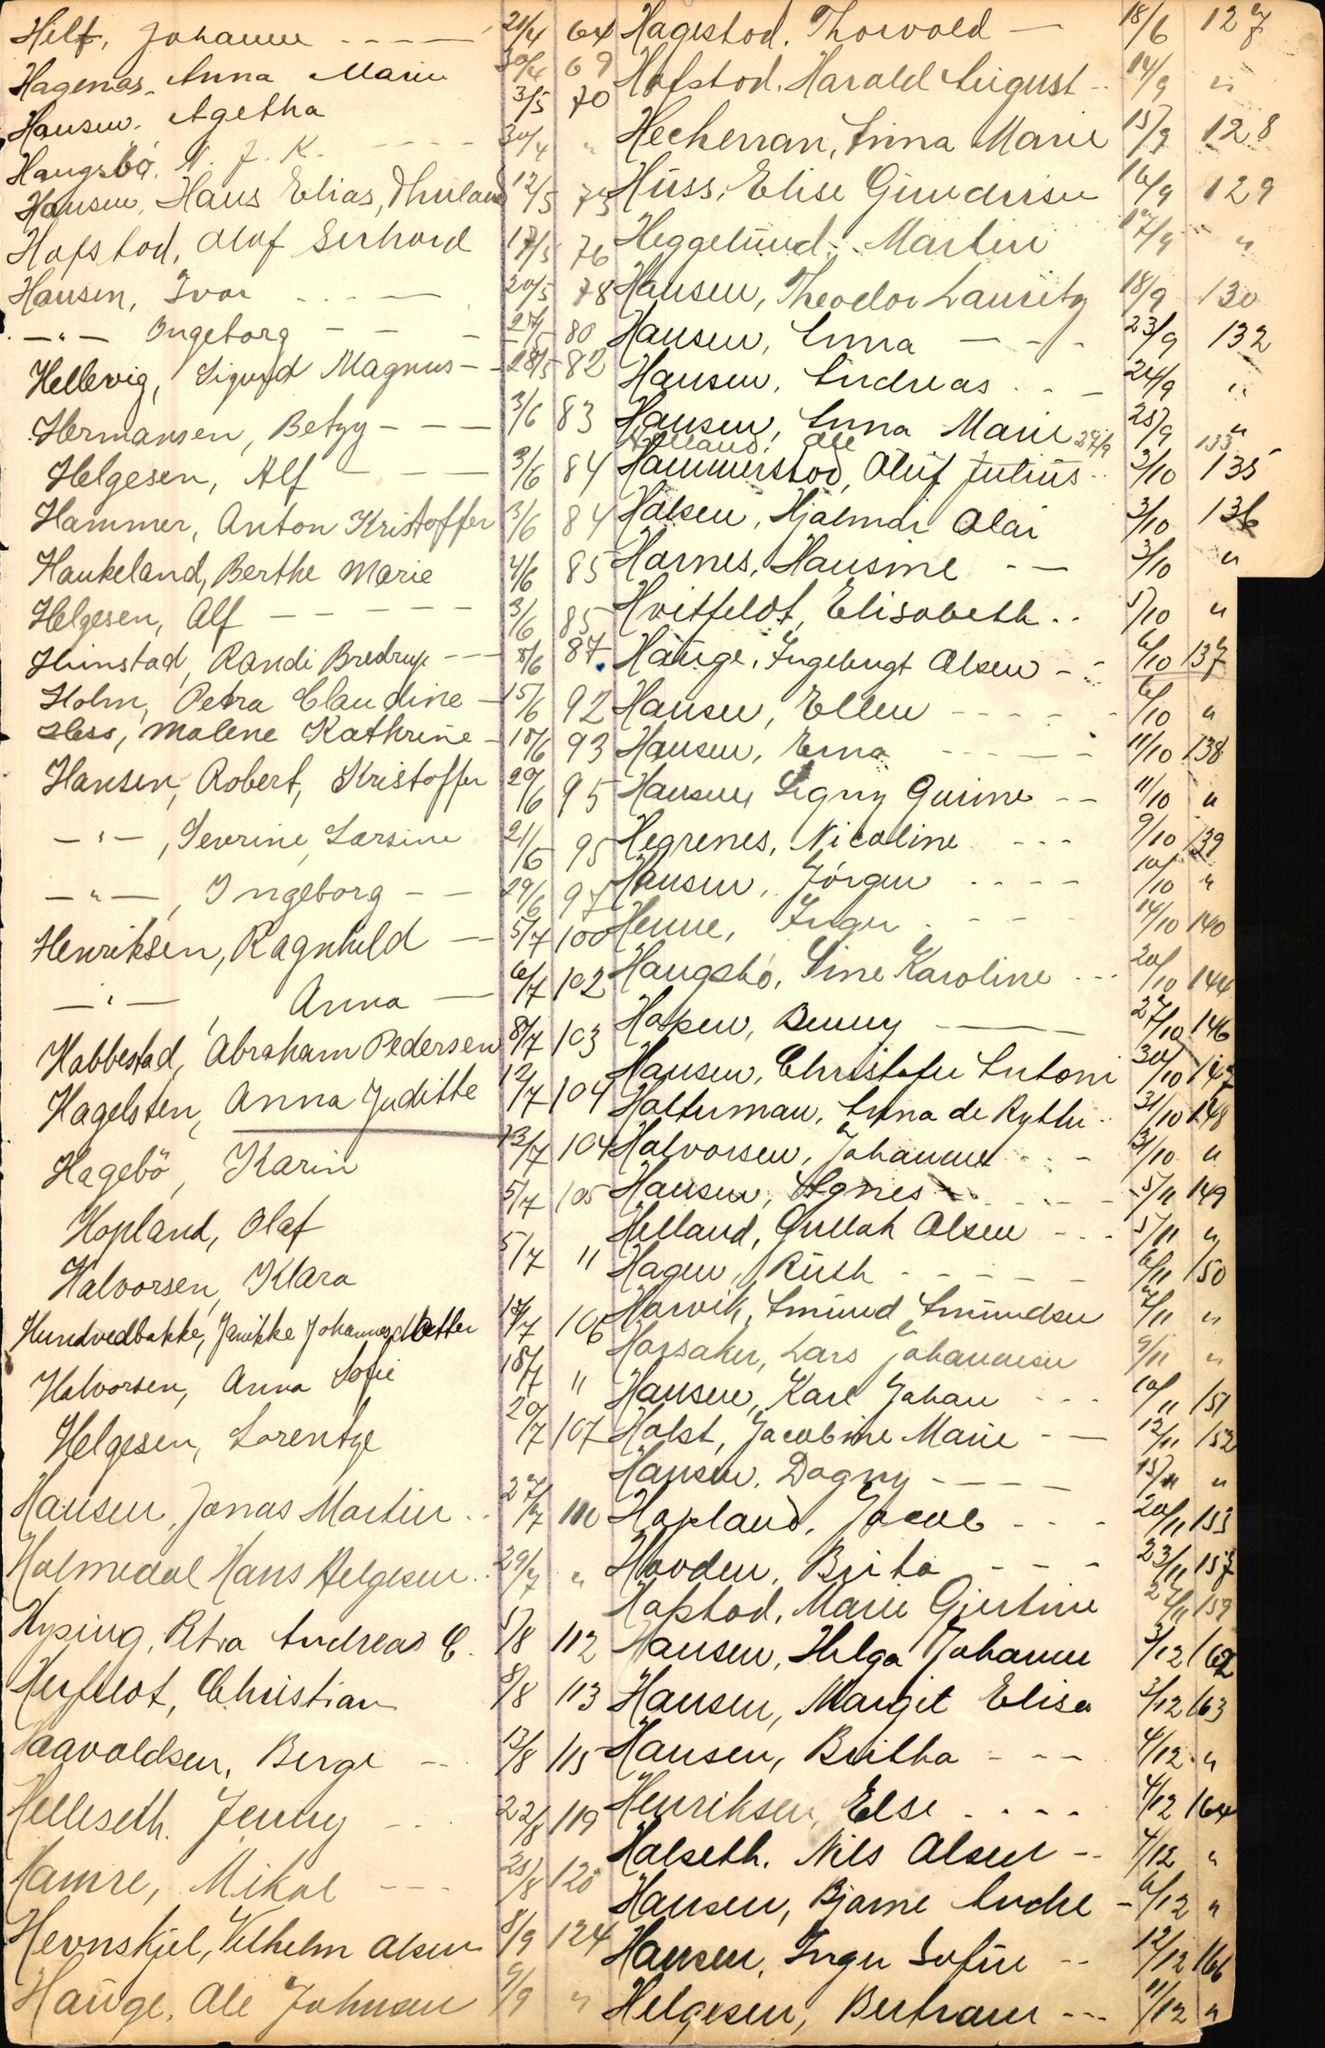 Hilf, Johanne - - - - 21/4 64
Hagenas, Anna Marie 30/4 69
Hansen, Agetha 3/5 70
Haugsbö, N. J. K. - - - - 30/4 "
Hansen, Hans Elias, Thuland 12/5 75
Hofstad, Olaf Gerhard 17/5 76
Hansen, Ivar - - - - 20/5 78
- " - Ingeborg - - - 27/5 80
Hellevig, Sigurd Magnus - - 28/5 82
Hermansen, Betzy - - - 3/6 83
Helgesen, Alf - - - 3/6 84
Hammer, Anton Kristoffer 3/6 84
Haukeland, Berthe Marie 4/6 85
Helgesen, Alf - - - - - 3/6 85
Hunstad, Randi Bredrup - - - 8/6 87
Holm, Petra Claudine - 15/6 92
Hess, Malene Kathrine - 18/6 93
Hansen, Robert, Kristoffer 20/6 95
- " - , Severine, Larsine 21/6 95
- " - , Ingeborg - - 29/6 97
Henriksen, Ragnhild - 5/7 100
- " - , Anna - 6/7 102
Habbestad, Abraham Pedersen 8/7 103
Hagelsten, Anna Judithe 12/7 104
Hagebö, Karin 13/7 104
Hopland, Olaf 5/7 105
Halvorsen, Klara 5/7 "
Hundvedbakke, Janikke Johannesdatter 17/7 106
Halvorsen, Anna Sofie 18/7 "
Helgesen, Lorentze 20/7 107
Hansen, Jonas Martin . . 27/7 110
Holmedal Hans Helgesen . . 29/7 "
Hysing, Andreas C. 5/8 112
Christian 8/8 113
Haavaldsen, Berge - - 13/8 115
Helleseth, Jenny - - 22/8 119
Hamre, Mikal - - - 25/8 120
Hevnskjel, Vilhelm Olsen 8/9 124
Hauge, Ole Johnsen 9/9 "
Hagestad, Thorvald - 18/6 127
Hofstad, Harald August - - 14/9 "
Heckerran, Anna Marie 15/9 128
Huss, Elise Gundersen 16/9 129
Heggelund, Martin 17/9 "
Hansen, Theodor Lauritz 18/9 130
Hansen, Anna - - - 23/9 132
Hansen, Andreas - - - 24/9 "
Hansen, Anna Marie 25/9 "
Helland, Ole 27/9 133
Hammerstad, Oluf Julius - - 3/10 135
Halsen, Hjalmar Olai 3/10 136
Harnes, Hansine - - 3/10 "
Hvitfeldt, Elisabeth . . 5/10 "
Hauge, Ingebrigt Olsen - - 6/10 137
Hansen, Ellen - - - - - 6/10 "
Hansen, Erna - - - - - 11/10 138
Hansen, Signy Gurine - - 11/10 "
Hegrenes, Nicoline - - - 9/10 139
Hansen, Jörgen - - - - 10/10 "
Henne, Inger - - - - 14/10 140
Haugsbö, Sine Karoline - - - 20/10 144
Hopen, Benny - - - 27/10 146
Hansen, Christofer Antoni 30/10 147
Halterman, Anna de Rytter - - 31/10 148
Halvorsen, Johanne - - - 31/10 "
Hansen, Agnes - - - - 5/11 149
Helland, Gullak Olsen - - - 5/11 "
Hagen, Ruth - - - - - 6/11 150
Harvik, Amund Amundsen 7/11 "
Haasaker, Lars Johannesen 9/11 "
Hansen, Karl Johan - - - 10/11 151
Holst, Jacobine Marie - - 12/11 152
Hansen, Dagny - - - - 15/11 "
Hopland, Jacob - - - 20/11 153
Hovden, Brita - - - - 23/11 157
Hopstad, Marie Gjertine 27/11 159
Hansen, Helga Johanne 3/12 162
Hansen, Margit Elisa 3/12 163
Hansen, Britha - - - 4/12 "
Henriksen, Else - - - - 4/12 164
Halseth, Nils Olsen - - 4/12 "
Hansen, Bjarne Andre - 6/12 "
Hansen, Inger Sofie - - 12/12 166
Helgesen, Bertram - - - 11/12 "